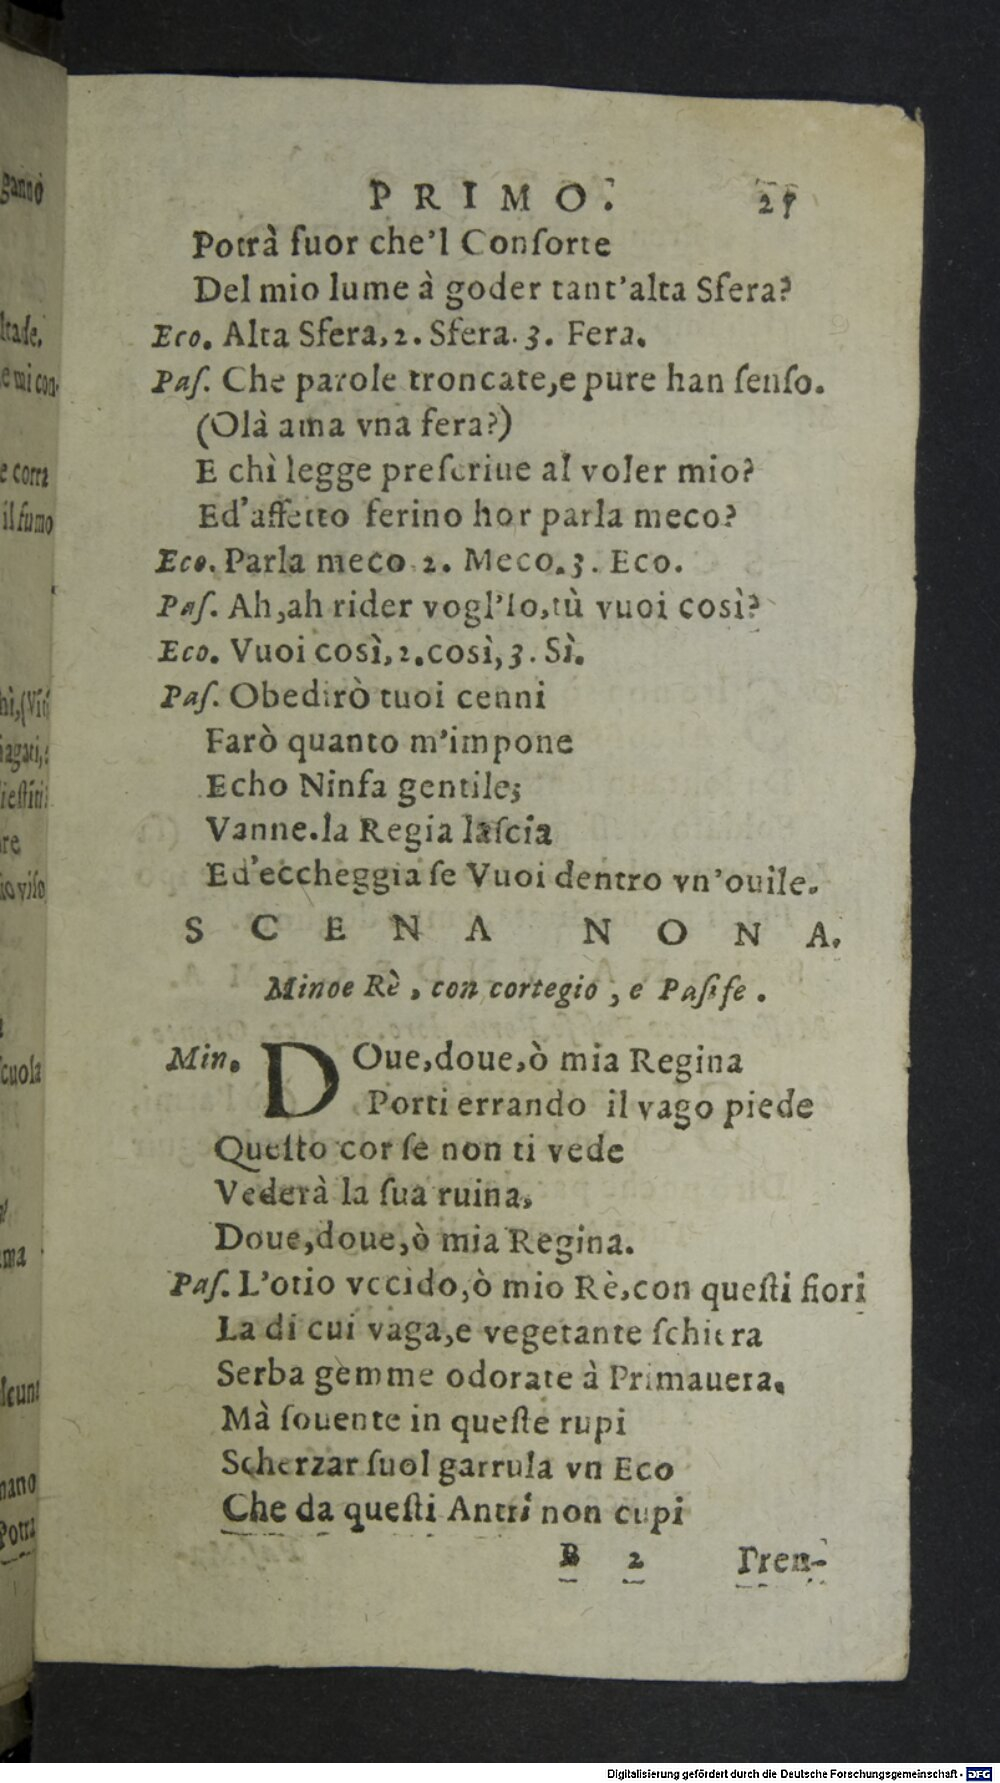 PRIMO. 25
Potrà fuor che'l Conſorte
Del mio lume à goder tant'alta Sfera?
Eco. Alta Sfera, 2. Sfera. 3. Fera.
Paſ. Che parole troncate, e pure han ſenſo.
(Olà ama vna fera?)
E chì legge preſcriue al voler mio?
Ed'affetto ferino hor parla meco?
Eco. Parla meco 2. Meco. 3. Eco.
Paſ. Ah, ah rider vogl'io, tù vuoi così?
Eco. Vuoi così, 2. così, 3. Sì.
Paſ. Obedirò tuoi cenni
Farò quanto m'impone
Echo Ninfa gentile;
Vanne. la Regia laſcia
Ed'eccheggia ſe Vuoi dentro vn'ouile.
SCENA NONA.
Minoe Rè, con cortegio, e Paſife.
Min. DOue, doue, ò mia Regina
Porti errando il vago piede
Queſto cor ſe non ti vede
Vederà la ſua ruina,
Doue, doue, ò mia Regina.
Paſ. L'otio vccido, ò mio Rè, con queſti fiori
La di cui vaga, e vegetante ſchiera
Serba gemme odorate à Primauera.
Mà ſouente in queſte rupi
Scherzar ſuol garrula vn Eco
Che da queſti Antri non cupi
B 2 Pren-
gannò
ltade.
e mi con-
e corra
il fumo
re
io viſo
cuola
ma
lcuna
mano
Potrà
Digitalisierung gefördert durch die Deutsche Forschungsgemeinschaft - DFG